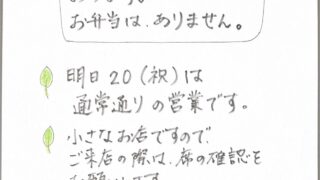 お弁当は、ありません。
明日20(祝)は
通常通りの営業です。
小さなお店ですので、
ご来店の際は、席の確認を